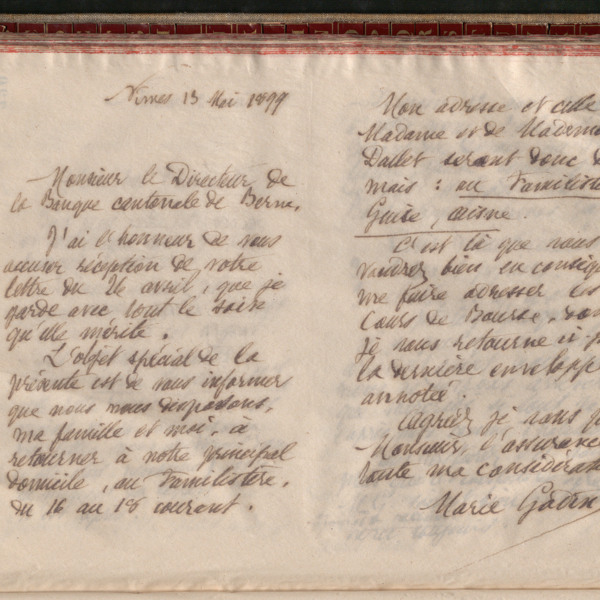 Nimes 13 Mai 1899
Monsieur le Directeur de
la Banque cantonale de Berne,
J'ai l'honneur de vous
accuser réception de votre
lettre du 26 avril, que je
garde avec tout le soin
qu'elle mérite.
L'objet spécial de la
présente est de vous informer
que nous nous disposons,
ma famille et moi, à
retourner à notre principal
domicile, au Familistère,
du 16 au 18 courant.
Mon adresse et celle
Madame et de Mademo
Dallet seront donc d
mais : au Familistè
Guise, Aisne.
C'est là que vous
voudrez bien en conséqu
me faire adresser les
Cours de Bourse, don
je vous retourne ci-j
la dernière enveloppe
annotée.
Agréez je vous p
Monsieur, l'assurance
toute ma considérat
Marie Godin